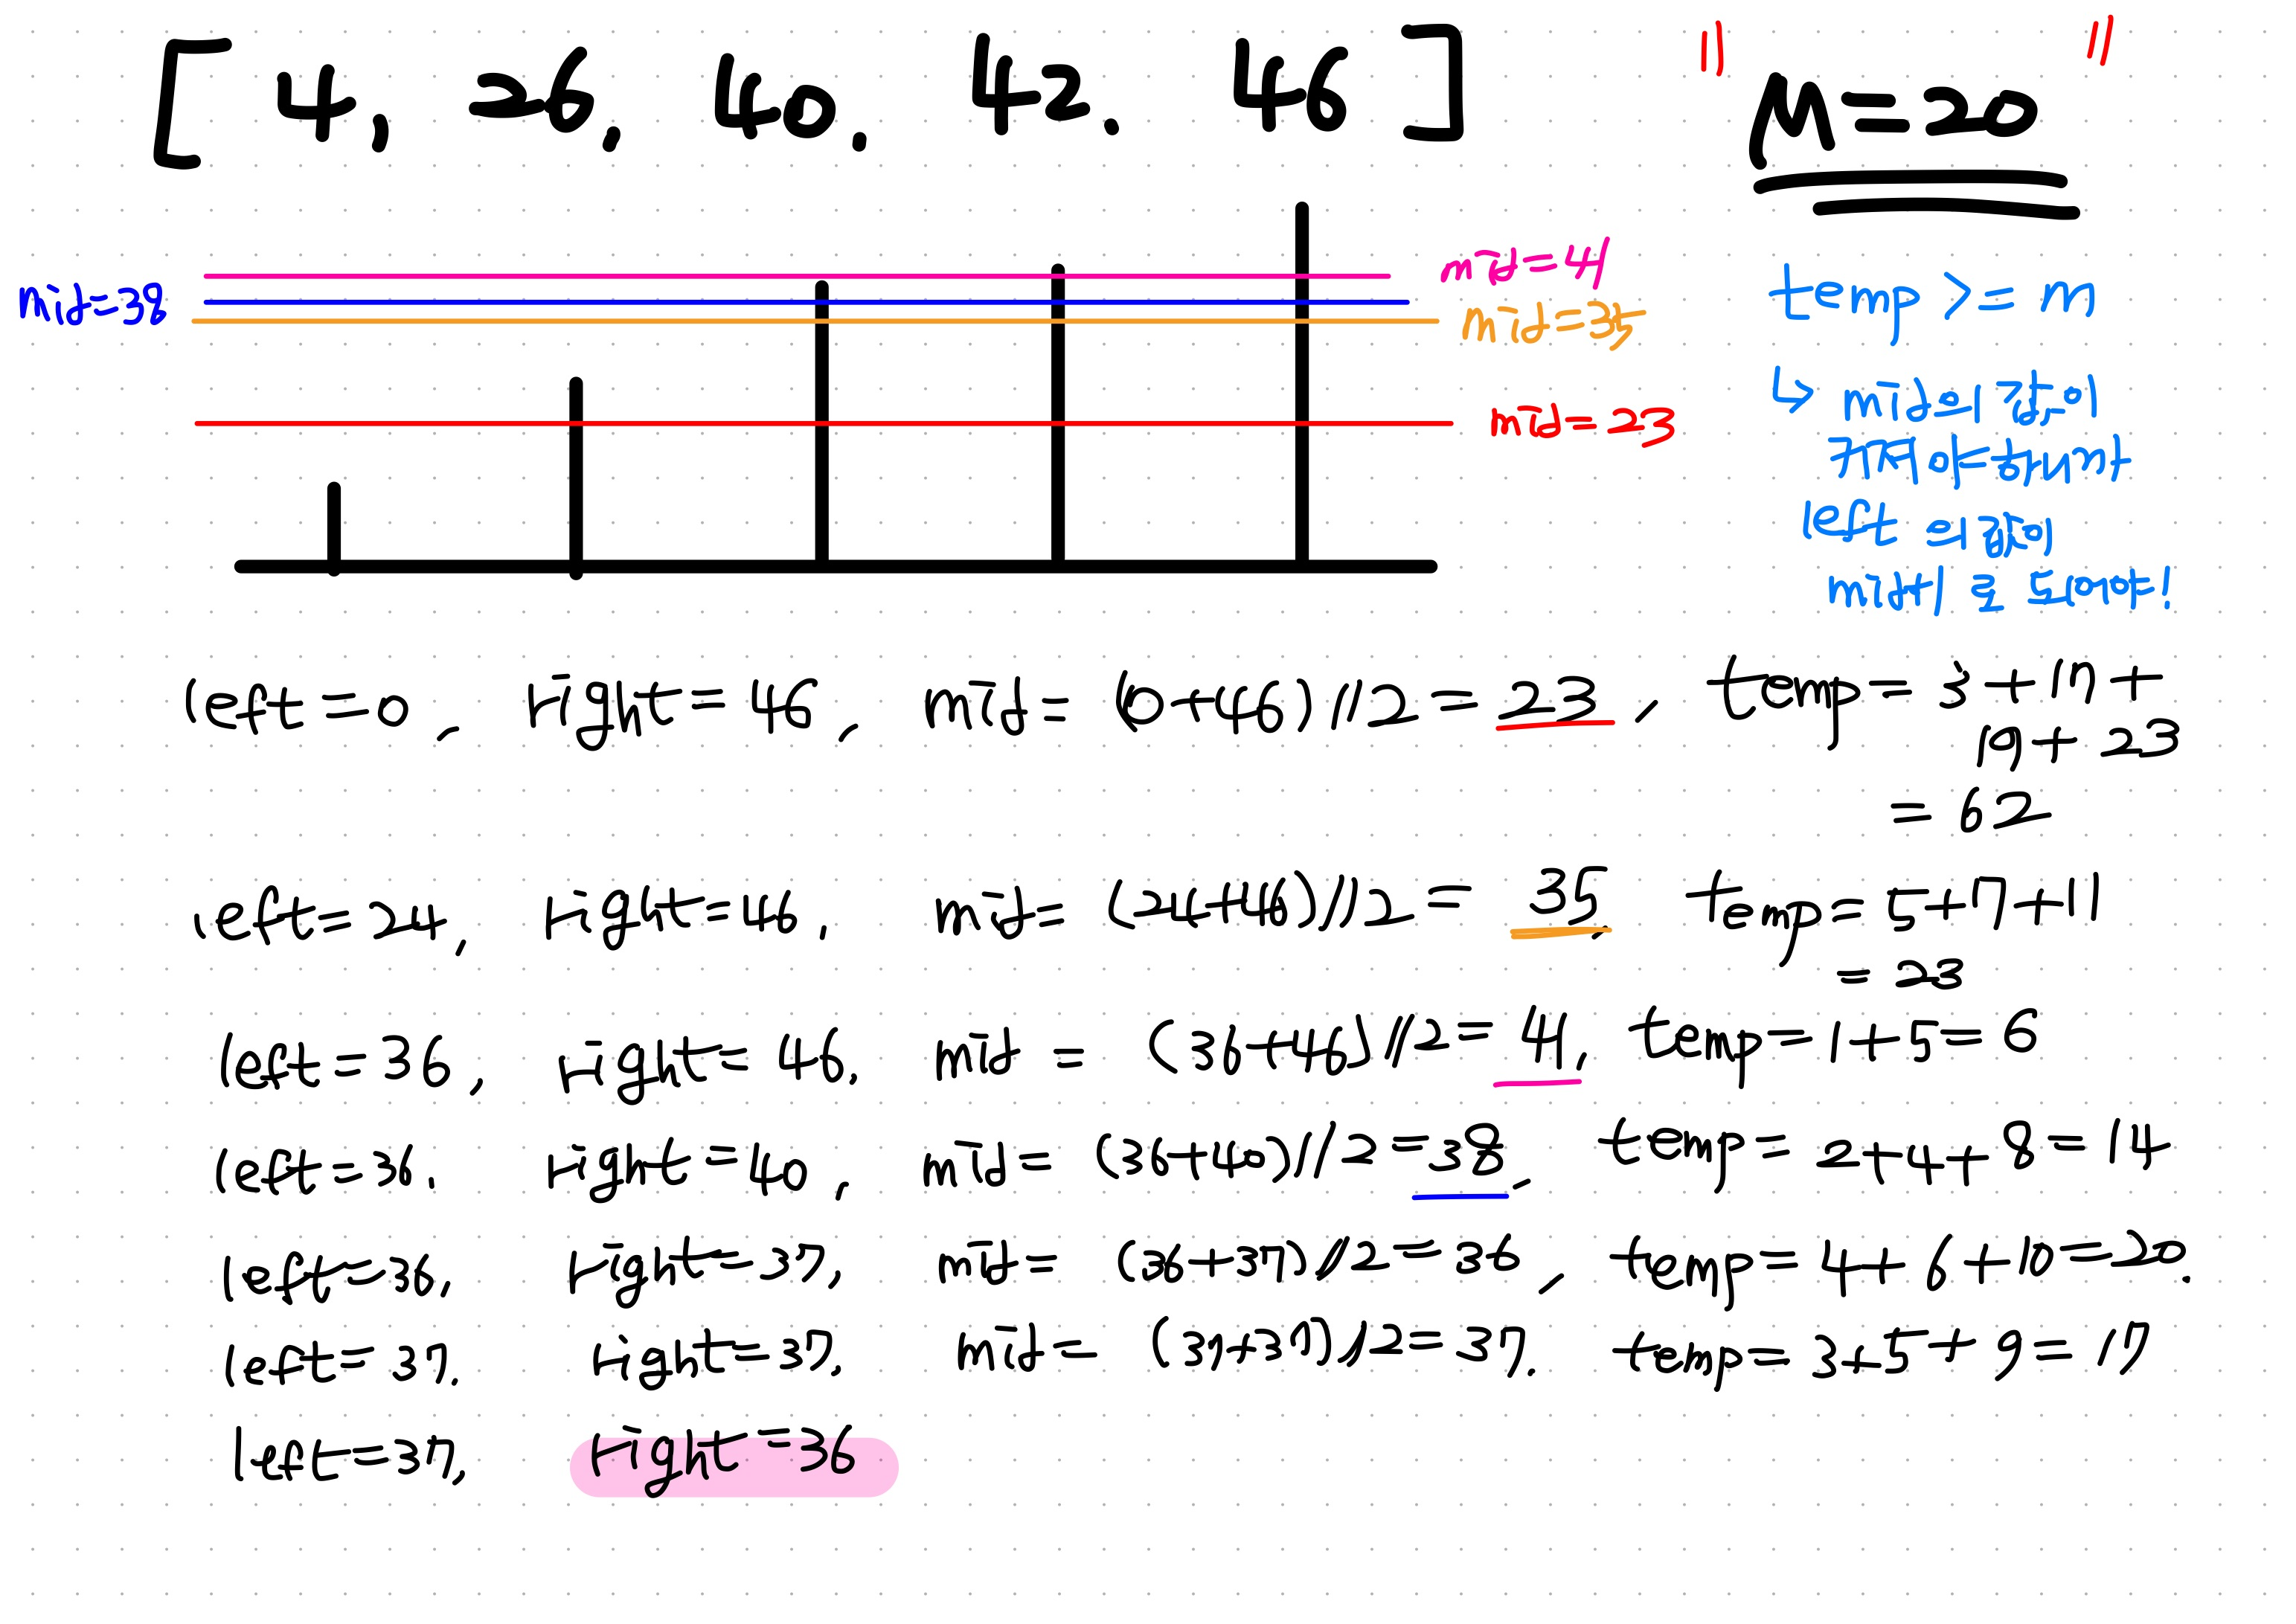 [ 4, 26, 40. 42. 46 ]
" M=20 "
mid=41
mid=38
mid=35
mid=23
temp >= m
↳ mid의 값이
커져야하니까
left 의 값이
mid+1 로 되어야!
left=0, right=46, mid= (0+46)//2=23, temp= 3+17+
19+23
= 62
left=24, right=46, mid= (24+46)//2= 35, temp= 5+7+11
= 23
left=36, right=46. mid= (36+46)//2=41, temp=1+5=6
left=36. right=40, mid= (36+40)//2=38, temp= 2+4+8=14
left=36, right=37, mid= (36+37)//2=36, temp= 4+6+10=20.
left= 37. right=37, mid= (37+37)//2=37. temp= 3+5+9=17
left=37, right=36